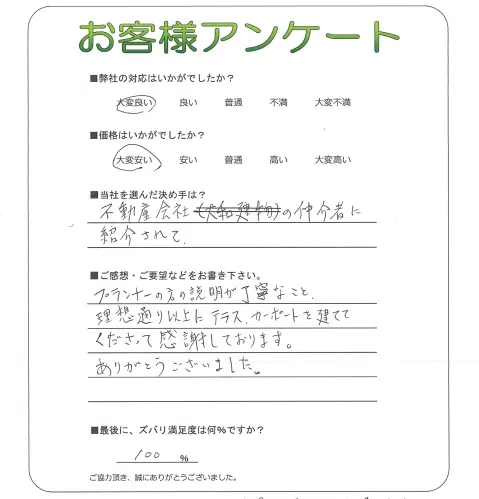 お客様アンケート
■弊社の対応はいかがでしたか？
大変良い 良い 普通 不満 大変不満
■価格はいかがでしたか？
大変安い 安い 普通 高い 大変高い
■当社を選んだ決め手は？
不動産会社(大和建物)の仲介者に
紹介されて.
■ご感想・ご要望などをお書き下さい。
プランナーの方の説明が丁寧なこと.
理想通り以上に テラス.カーポートを建てて
くださって感謝しております。
ありがとうございました。
■最後に、ズバリ満足度は何%ですか？
100 %
ご協力頂き、誠にありがとうございました。